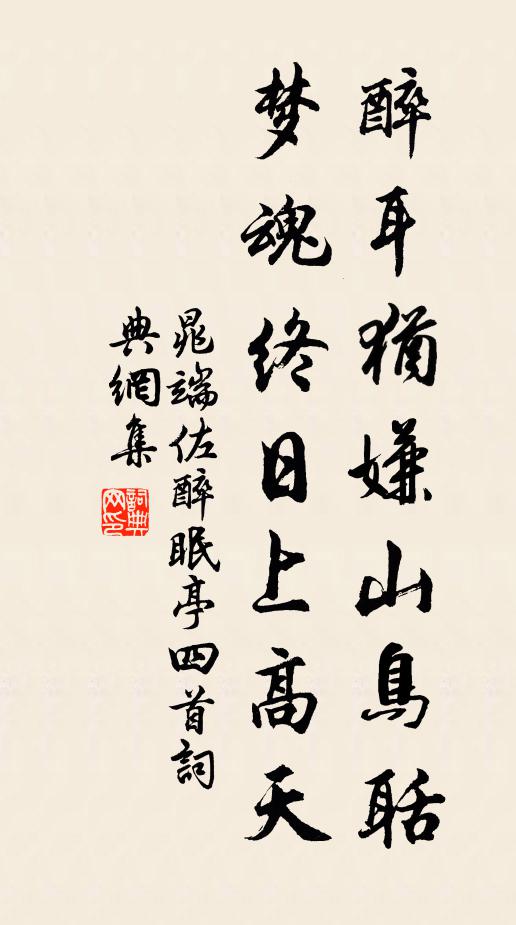 醉耳犹嫌山鳥聒
梦魂终日上高天
晁端佐醉眠亭四首詞
典網集
詞典
网印